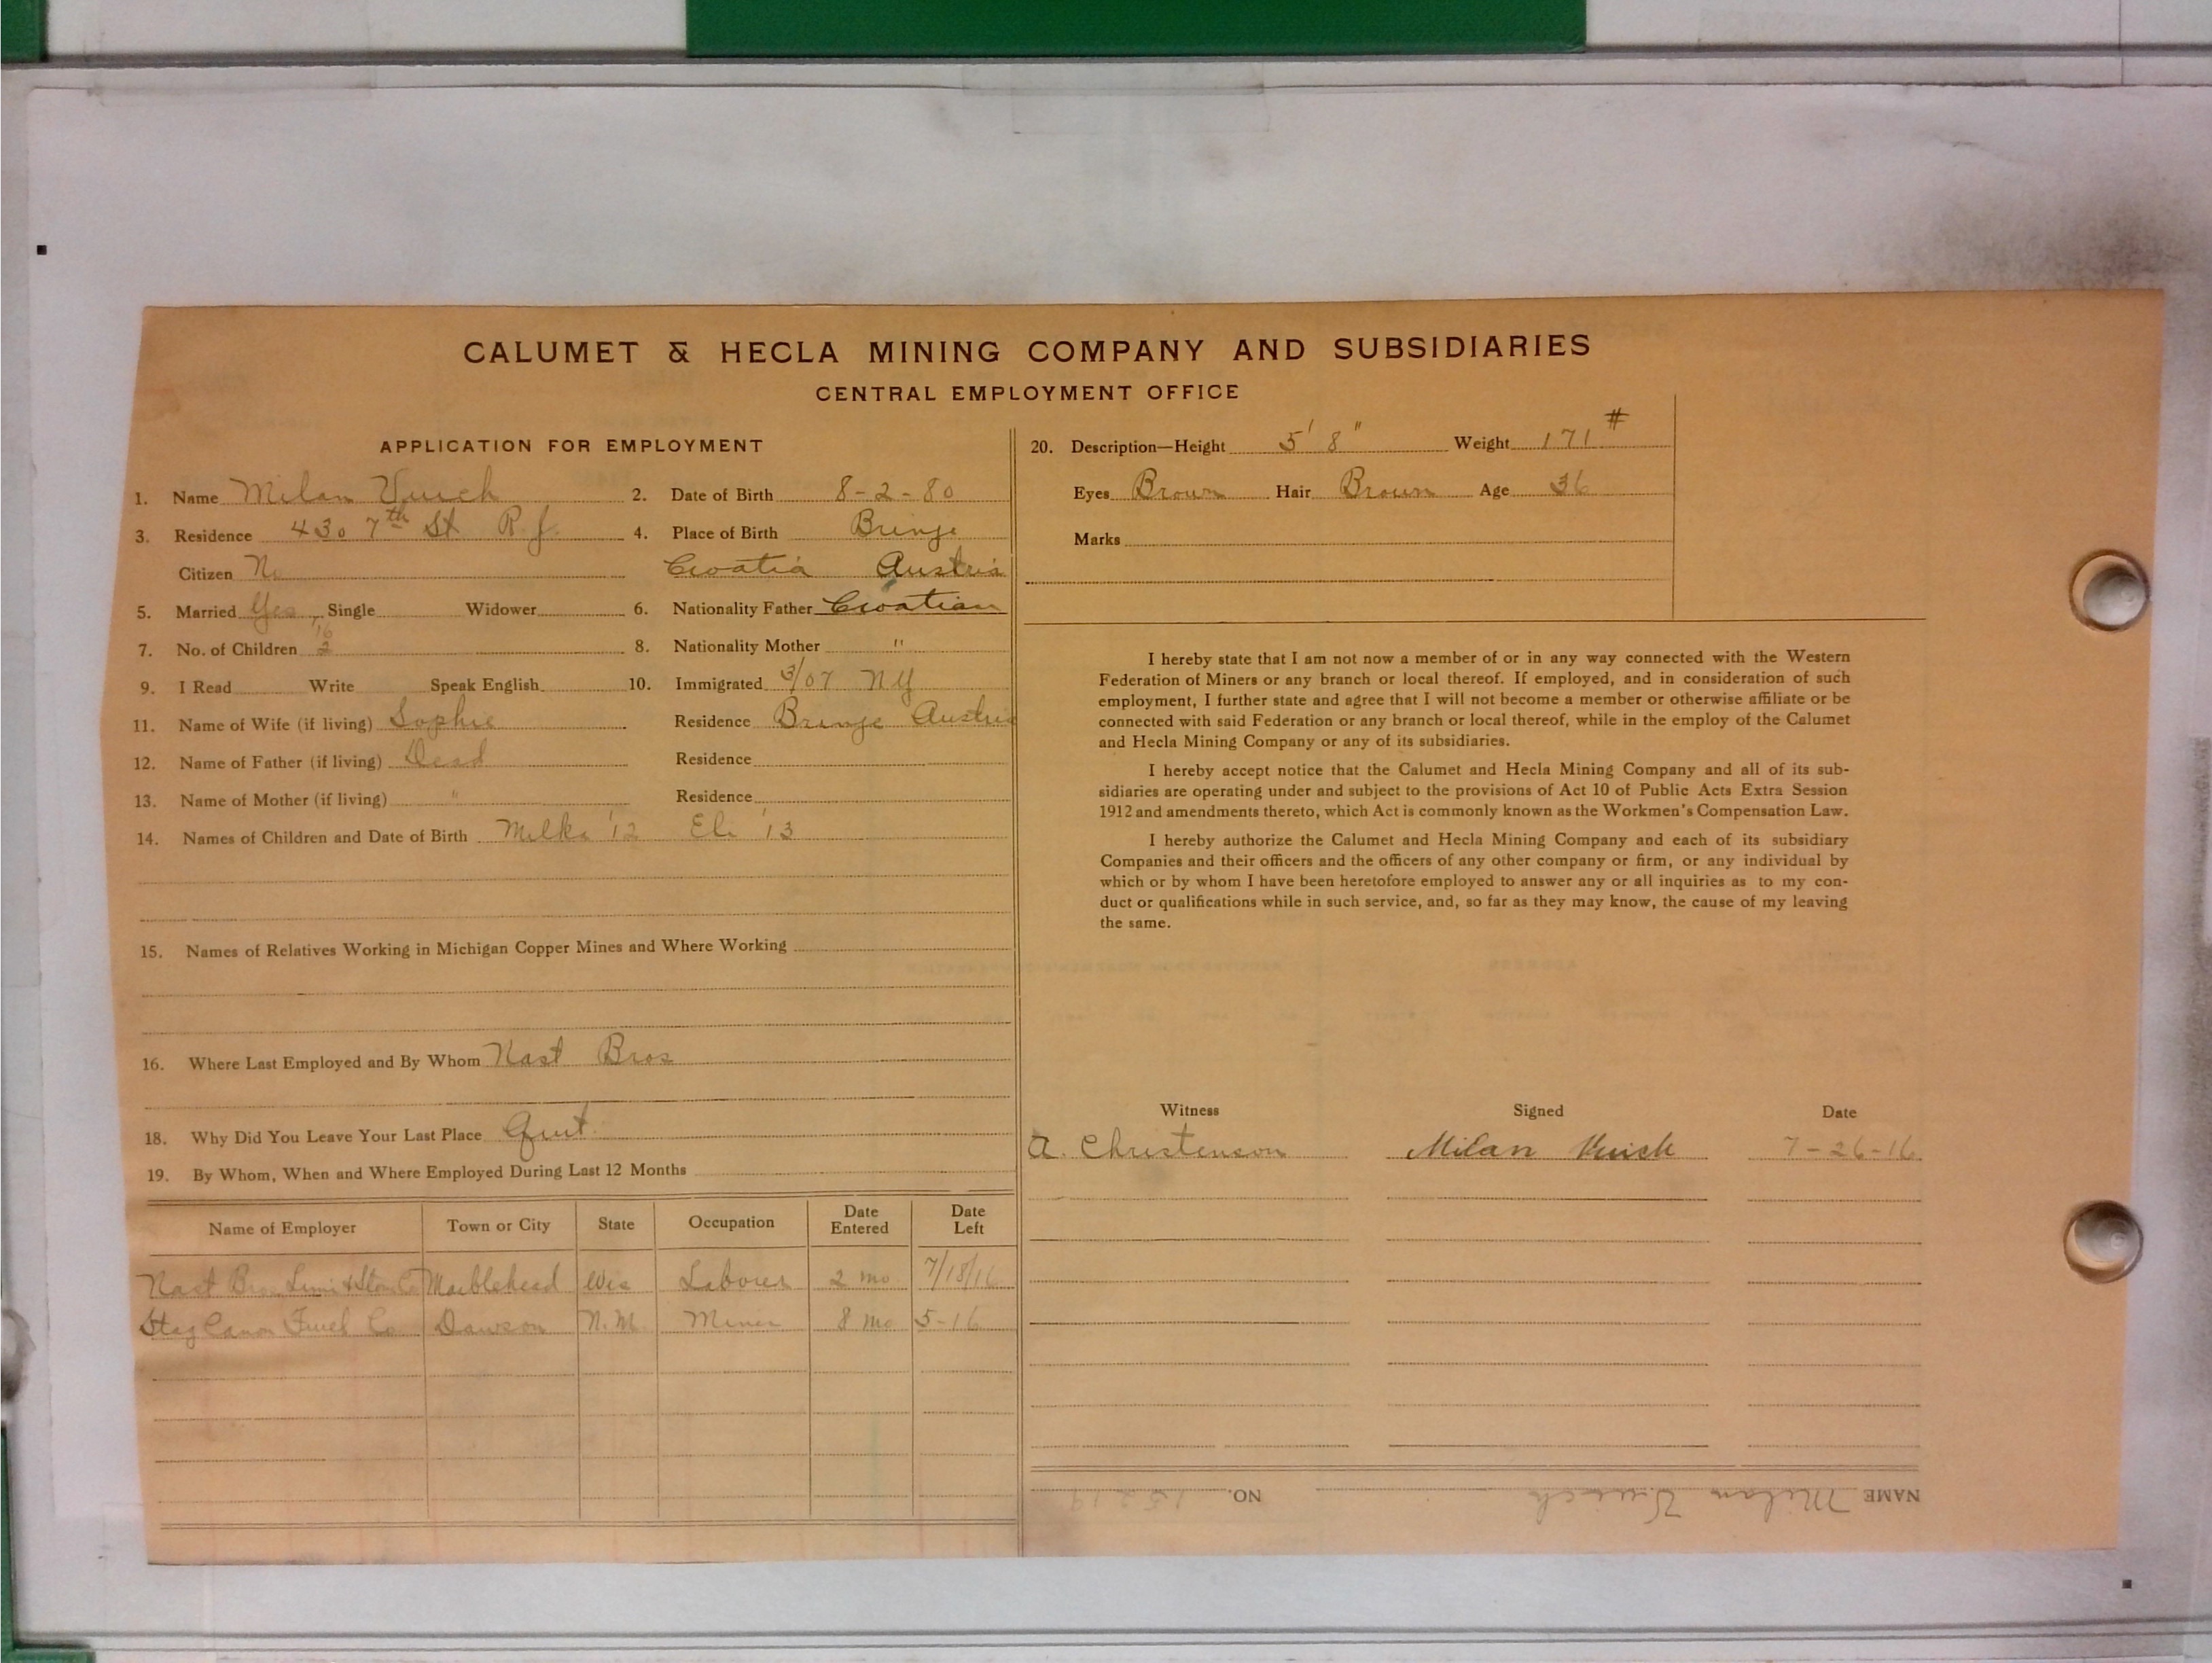 CALUMET & HECLA MINING COMPANY AND SUBSIDIARIES
CENTRAL EMPLOYMENT OFFICE
APPLICATION FOR EMPLOYMENT
1. Name Milan Vuich 2. Date of Birth 8-2-80
3. Residence 430 7th St R.J. 4. Place of Birth Brinje
Citizen No Croatia Austria
5. Married Yes Single Widower 6. Nationality Father Croatian
7. No. of Children 2 8. Nationality Mother "
9. I Read Write Speak English 10. Immigrated 3/07 NY
11. Name of Wife (if living) Sophie Residence Brinje Austria
12. Name of Father (if living) Dead Residence
13. Name of Mother (if living) " Residence
14. Names of Children and Date of Birth Milka '12 Eli '13
15. Names of Relatives Working in Michigan Copper Mines and Where Working
16. Where Last Employed and By Whom Nast Bros
18. Why Did You Leave Your Last Place Quit
19. By Whom, When and Where Employed During Last 12 Months
Name of Employer Town or City State Occupation Date Entered Date Left
Nast Bros Lime & Stone Co Marblehead Wis Laborer 2 mo 7/18/16
Stag Canon Fuel Co Dawson N.M. Miner 8 mo 5-16
20. Description—Height 5' 8" Weight 171 #
Eyes Brown Hair Brown Age 36
Marks
I hereby state that I am not now a member of or in any way connected with the Western
Federation of Miners or any branch or local thereof. If employed, and in consideration of such
employment, I further state and agree that I will not become a member or otherwise affiliate or be
connected with said Federation or any branch or local thereof, while in the employ of the Calumet
and Hecla Mining Company or any of its subsidiaries.
I hereby accept notice that the Calumet and Hecla Mining Company and all of its sub-
sidiaries are operating under and subject to the provisions of Act 10 of Public Acts Extra Session
1912 and amendments thereto, which Act is commonly known as the Workmen's Compensation Law.
I hereby authorize the Calumet and Hecla Mining Company and each of its subsidiary
Companies and their officers and the officers of any other company or firm, or any individual by
which or by whom I have been heretofore employed to answer any or all inquiries as to my con-
duct or qualifications while in such service, and, so far as they may know, the cause of my leaving
the same.
Witness Signed Date
A. Christenson Milan Vuich 7-26-16
NAME Milan Vuich NO. 15219